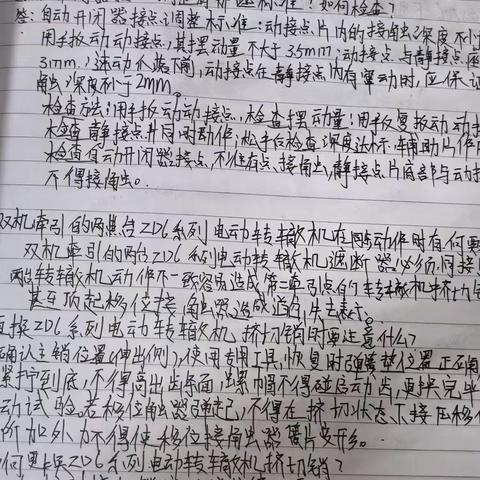 答:自动开闭器接点调整标准:动接点片内的接触出深度不小
用手扳动动接点,其摆动量不大于3.5mm;动接点与静接点座
3mm,速动爪落下前,动接点在静接点内有窜动时,应保证
触出深度不小于2mm。
检查方法:用手扳动动接点,检查摆动量;用手反复扳动动接
检查静接点片同时动作;松手后检查深度达标;辅助片作用
检查自动开闭器接点,不但有点、接角出,静接点片底部与动接
不得接角出。
双机牵引的两点台ZD6系列电动转辙机在同动作时有何
双机牵引的两台ZD6系列电动转辙机遮断器必须同接
两转辙机动作不一致容易造成第二牵引点的转辙机挤切
甚至顶起移位接触器,造成道岔失去表示。
更换ZD6系列电动转辙机挤切销时要注意什么?
确认主销位置(伸出侧),使用专用工具,恢复时弹簧垫位置正确
紧拧到底,不得高出齿面,螺帽不得碰启动齿,更换完毕
动试验。若移位触器弹起,不得在挤切状态下接压移位
所加外力不得使移位接触器簧片变形。
何更换ZD6系列电动转辙机挤切销?